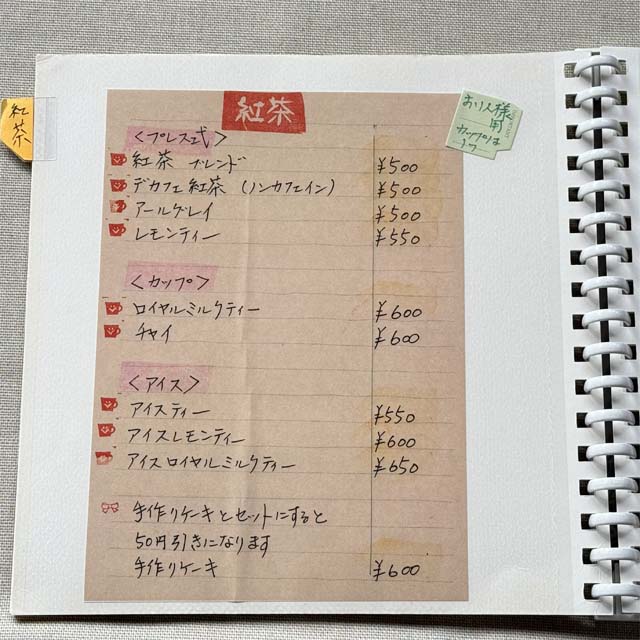 紅茶
紅茶
お1人様
用
カップは
1つ
<プレス式>
紅茶 ブレンド ¥500
デカフェ紅茶 (ノンカフェイン) ¥500
アールグレイ ¥500
レモンティー ¥550
<カップ>
ロイヤルミルクティー ¥600
チャイ ¥600
<アイス>
アイスティー ¥550
アイスレモンティー ¥600
アイスロイヤルミルクティー ¥650
手作りケーキとセットにすると
50円引きになります
手作りケーキ ¥600